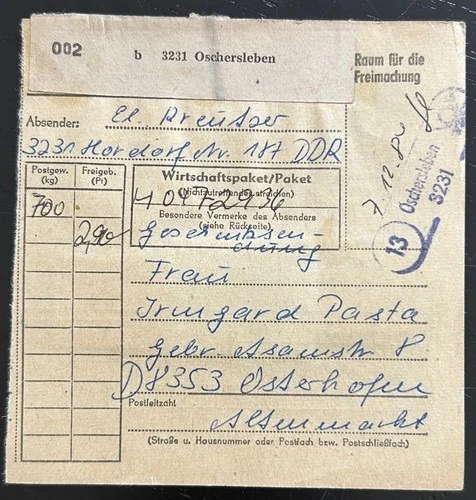 002 b 3231 Oschersleben
Raum für die
Freimachung
Absender: El. Kreutzer
3231 Hordorf Nr. 187 DDR
Postgew.
(kg)
Freigeb.
(Pf)
700
2,90
Wirtschaftspaket/Paket
(Nichtzutreffendes streichen)
Besondere Vermerke des Absenders
(siehe Rückseite)
Geschenksen-
dung
7.12.84
Oschersleben
3231
13
Frau
Irmgard Pasta
Gebr. Asamstr 8
D8353 Osterhofen
Postleitzahl
Altenmarkt
(Straße u. Hausnummer oder Postfach bzw. Postschließfach)